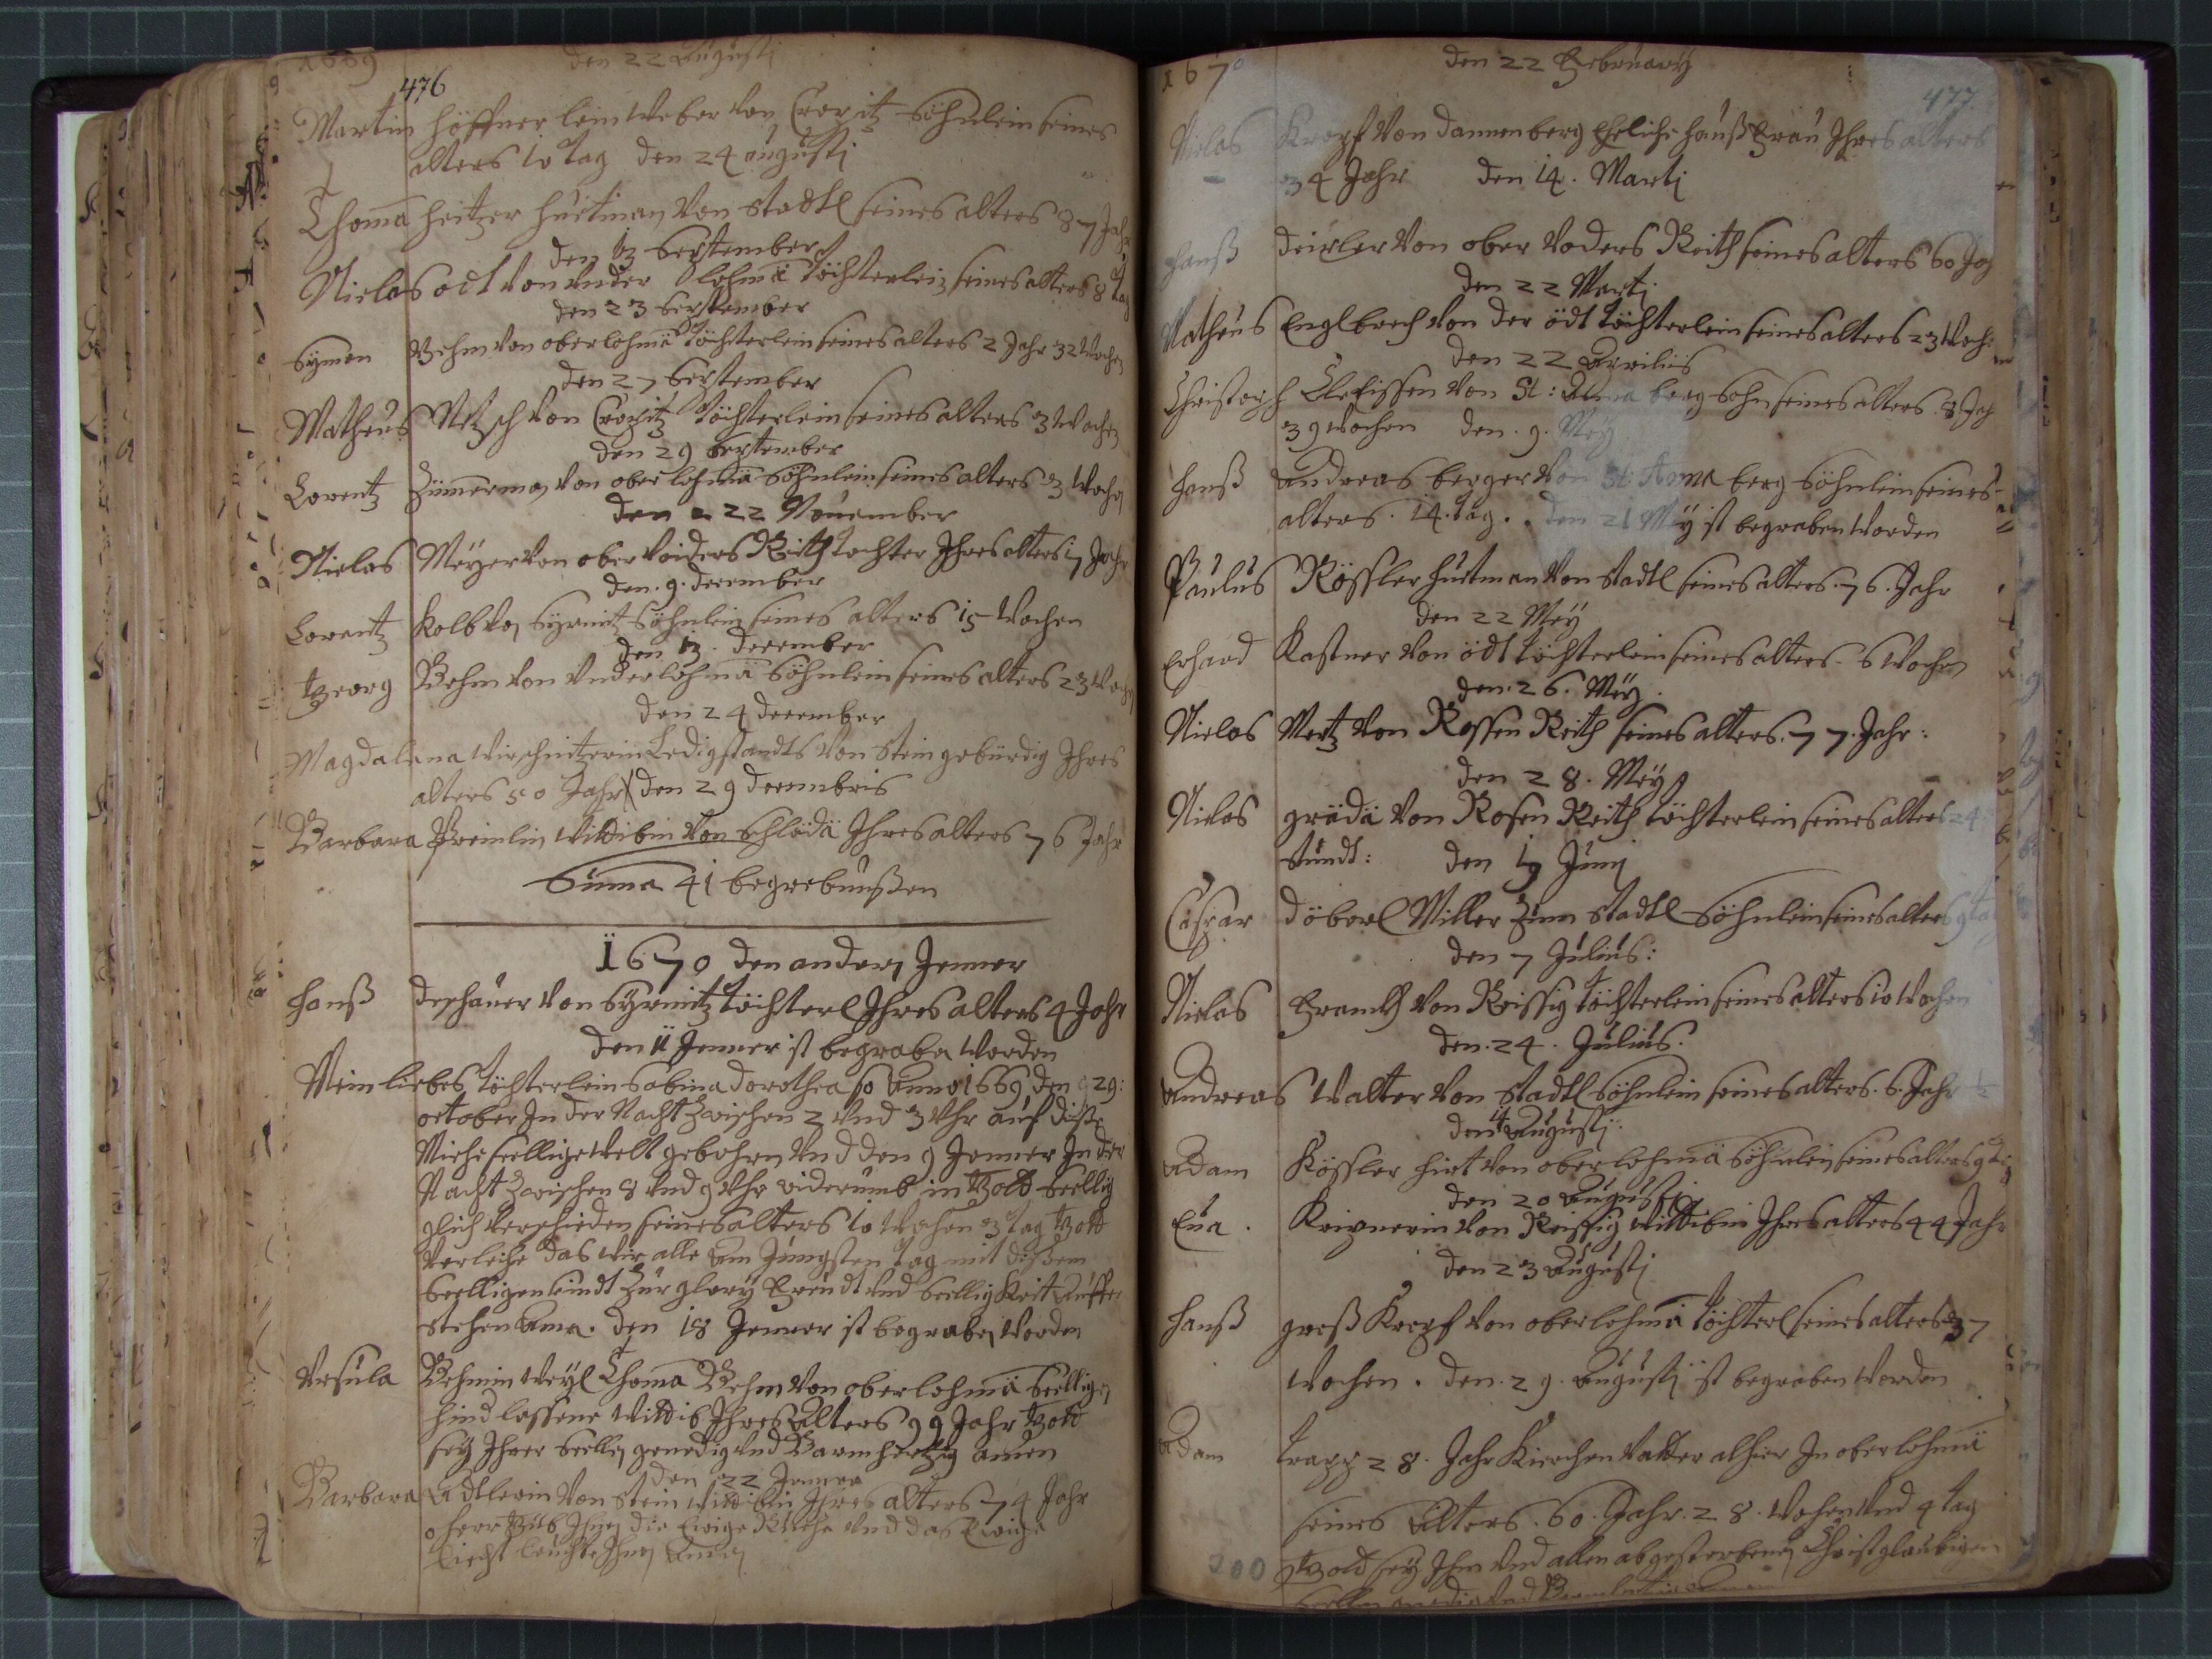 1669
den 22 Augusti
476
Martin höffner leinweber von Croritz Söhnlein seines
alters 10 tag den 24 augusti
Thoma heitzer huetman von Stadtl seines alters 87 Jahr
den 13 September
Niclas odt von under lohma töchterlein seines alters 8 tag
den 23 September
Symon Behm von oberlohma töchterlein seines alters 2 Jahr 32 Wochen
den 27 September
Matheus von Croritz töchterlein seines alters 3 Wochen
den 29 September
Lorentz Zimerman von oberlohma Söhnlein seines alters 3 Wochen
den 22 November
Niclas Meyer von ober Reith tochter Ihres alters 17 Jahr
den. 9. december
Lorentz Kolb von Syrmitz Söhnlein seines alters 15 Wochen
den 13. december
Georg Behm von underlohma Söhnlein seines alters 23 Wochen
den 24 december
Magdalena Ledigstandts von Stein gebürdig Ihres
alters 50 Jahr den 29 decembris
Barbara Wittibin von Schlada Ihres alters 76 Jahr
Suma 41 begrebnußen
1670 den andern Jenner
Hanß deschauer von Syrmitz töchterl Ihres alters 4 Jahr
den 11 Jenner ist begraben worden
Mein liebes töchterlein Sabina dorothea so Anno 1669 den 29:
october In der Nacht zwischen 2 und 3 Uhr auf diße
Miehseellige Welt gebohren und den 9 Jenner In der
Nacht zwischen 8 und 9 Uhr widerumb in Gott Seellig
glich verschieden seines alters 10 Wochen 3 tag Gott
verleihe das wir alle am Jüngsten tag mit dißem
Seelligen kindt zur glory freudt und Seelligkeit Auffer
stehen Amen. den 18 Jenner ist begraben worden
Ursula Behmin Weyl Thoma Behm von oberlohma Seelligen
hindlassene Wittib Ihres Alters 99 Jahr Gott
sey Ihrer Seellen genedig und Barmhertzig amen
den 22 Jenner
Barbara Adtlerin von Stein Wittibin Ihres alters 74 Jahr
o herr Gib Ihnen die Ewige Ruehe und das Ewige
liecht leuchte Ihnen Amen
1670
den 22 Februarÿ
477
Niclas Kropf von dannenberg Eheliche haußfrau Ihres alters
34 Jahr den 14. Marti
Hanß von ober Reith seines alters 60 Jar
den 22 Marti
Matheus Englbrech von der ödt töchterlein seines alters 23 Wochen
den 22 Aprilius
Christoph von St: Anna berg Sohn seines alters 8 Jahr
39 Wochen den. 9. Mey
Hanß Andreas berger von St: Anna berg Söhnlein seines
alters. 14. tag. den 21 Mey ist begraben worden
Paulus Rössler huetman von Stadtl seines alters. 76. Jahr
den 22 Mey
Erhard Kastner von ödt töchterlein seines alters. 6 Wochen
den. 26. Mey.
Niclas Mertz von Rossen Reith seines alters. 77. Jahr:
den 28. Mey
Niclas gräda von Rosen Reith töchterlein seines alters 24
Stundt: den 19 Juni
Caspar döberl Miller Zum Stadtl Söhnlein seines alters 9 tag
den 7 Julius:
Niclas von Reissig töchterlein seines alters 10 Wochen
den. 24. Julius.
Andreas Walter von Stadtl Söhnlein seines alters. 6. Jahr
den 14 Augusti
Adam Kössler hirt von oberlohma Söhnlein seines alters 9 tag
den 20 Augusti
Eua. von Reissig Wittibin Ihres alters 44 Jahr
den 23 Augusti
Hanß groß Kropf von oberlohma töchterl seines alters 37
Wochen. den. 29. Augusti ist begraben worden
Adam trapp 28. Jahr Kirchen Vatter alhier In oberlohma
seines Alters. 60. Jahr. 28. Wochen und 4 tag
Gott sey Ihm und allen abgestorbenen Christglaubigen
200